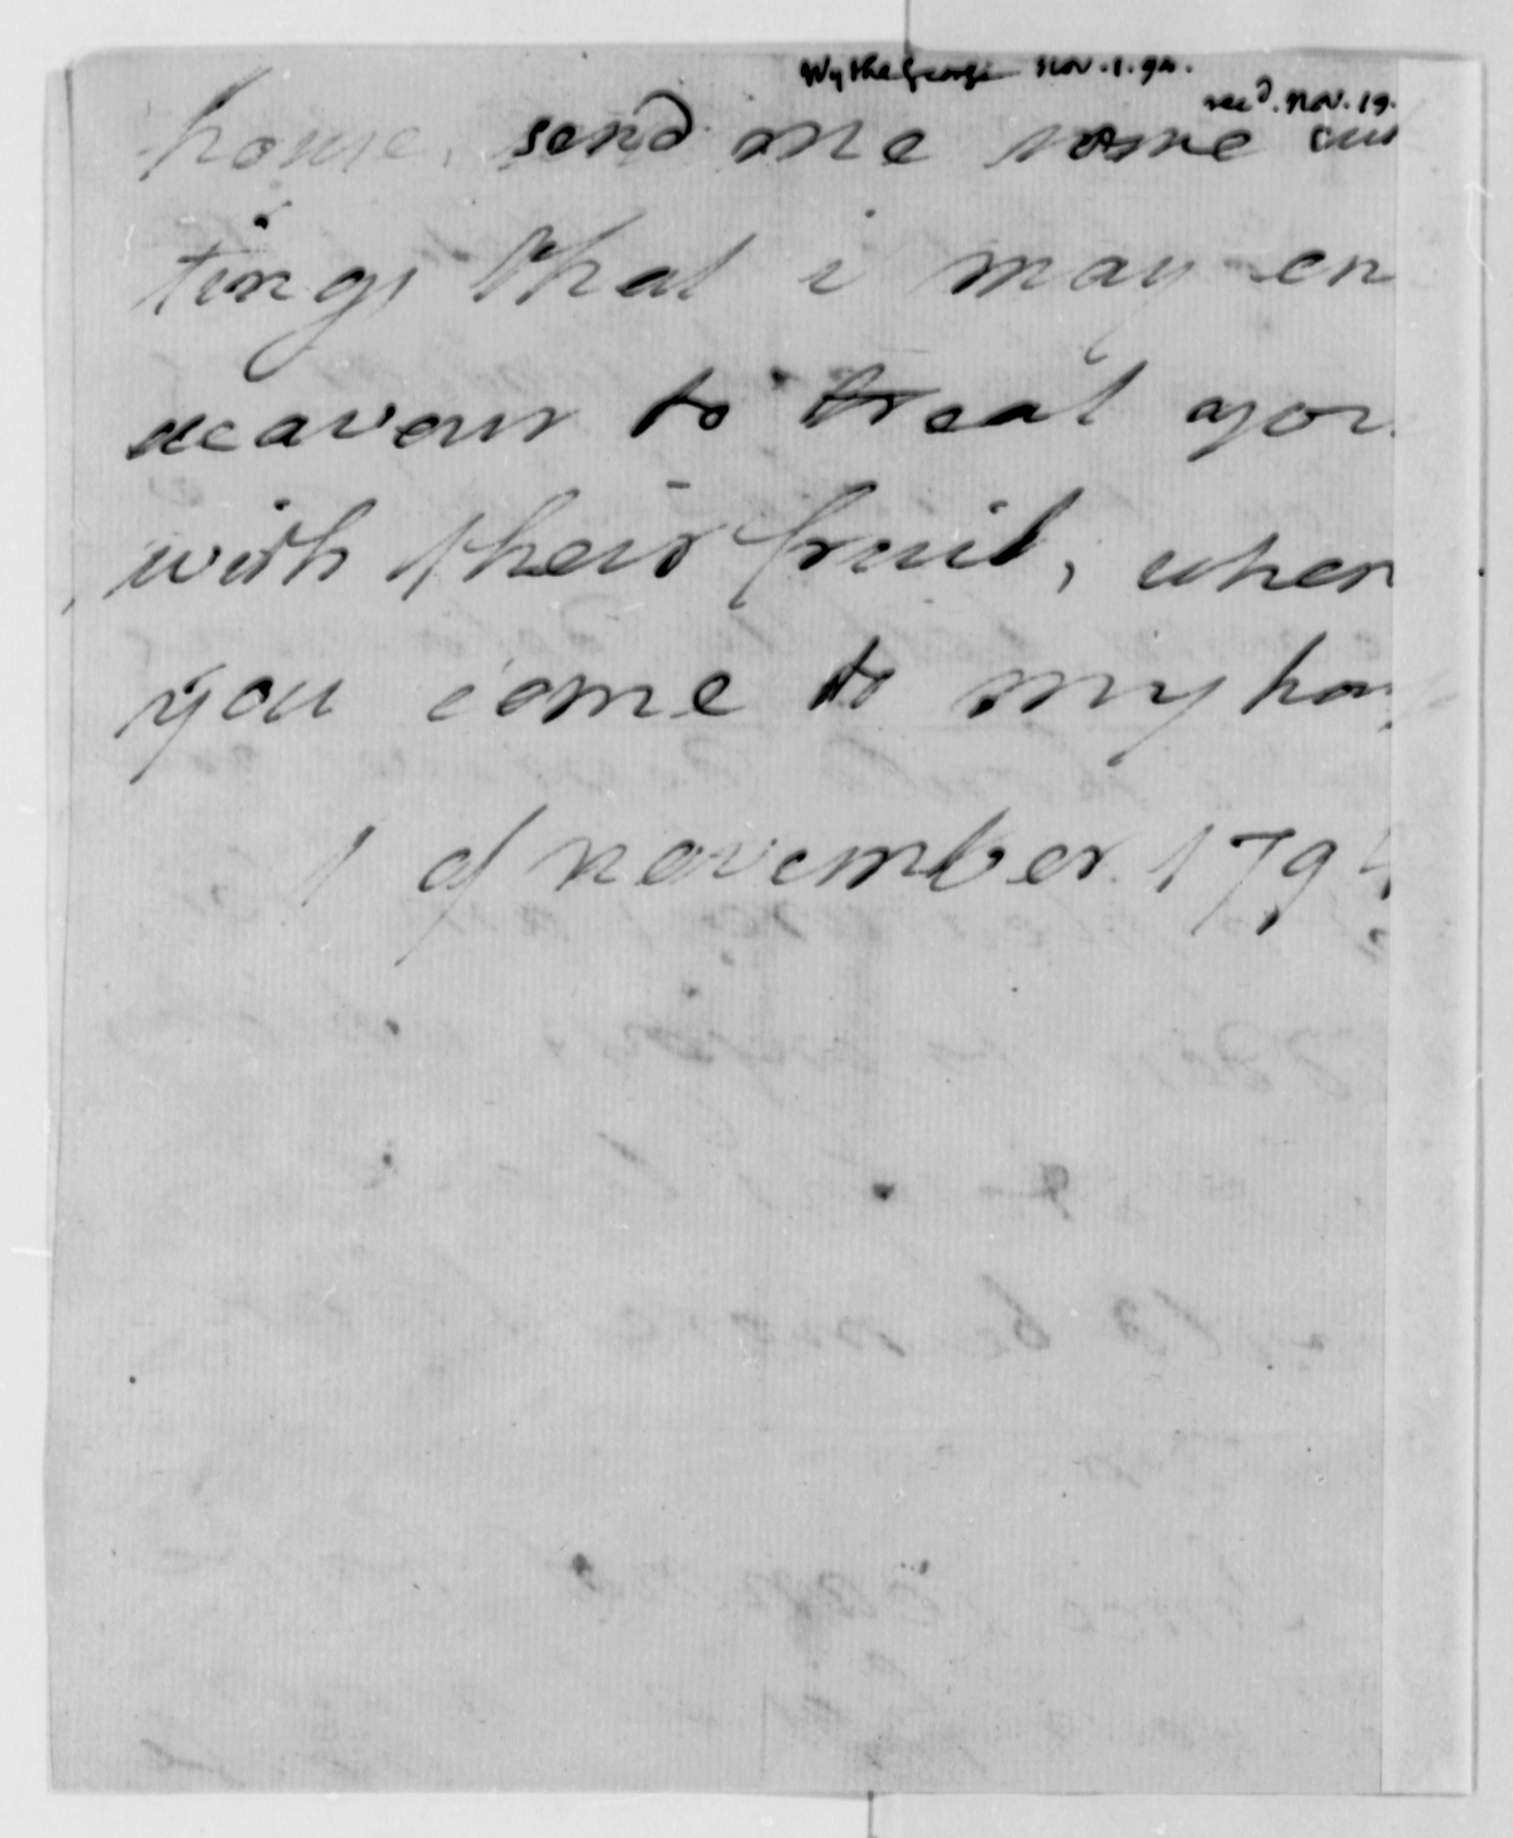 Wythe George Nov. 1. 94.
recd. Nov. 19.
home, send me some cut
tings that i may en
deavour to treat you
with their fruit, when
you come to my hou
1 of november 1794